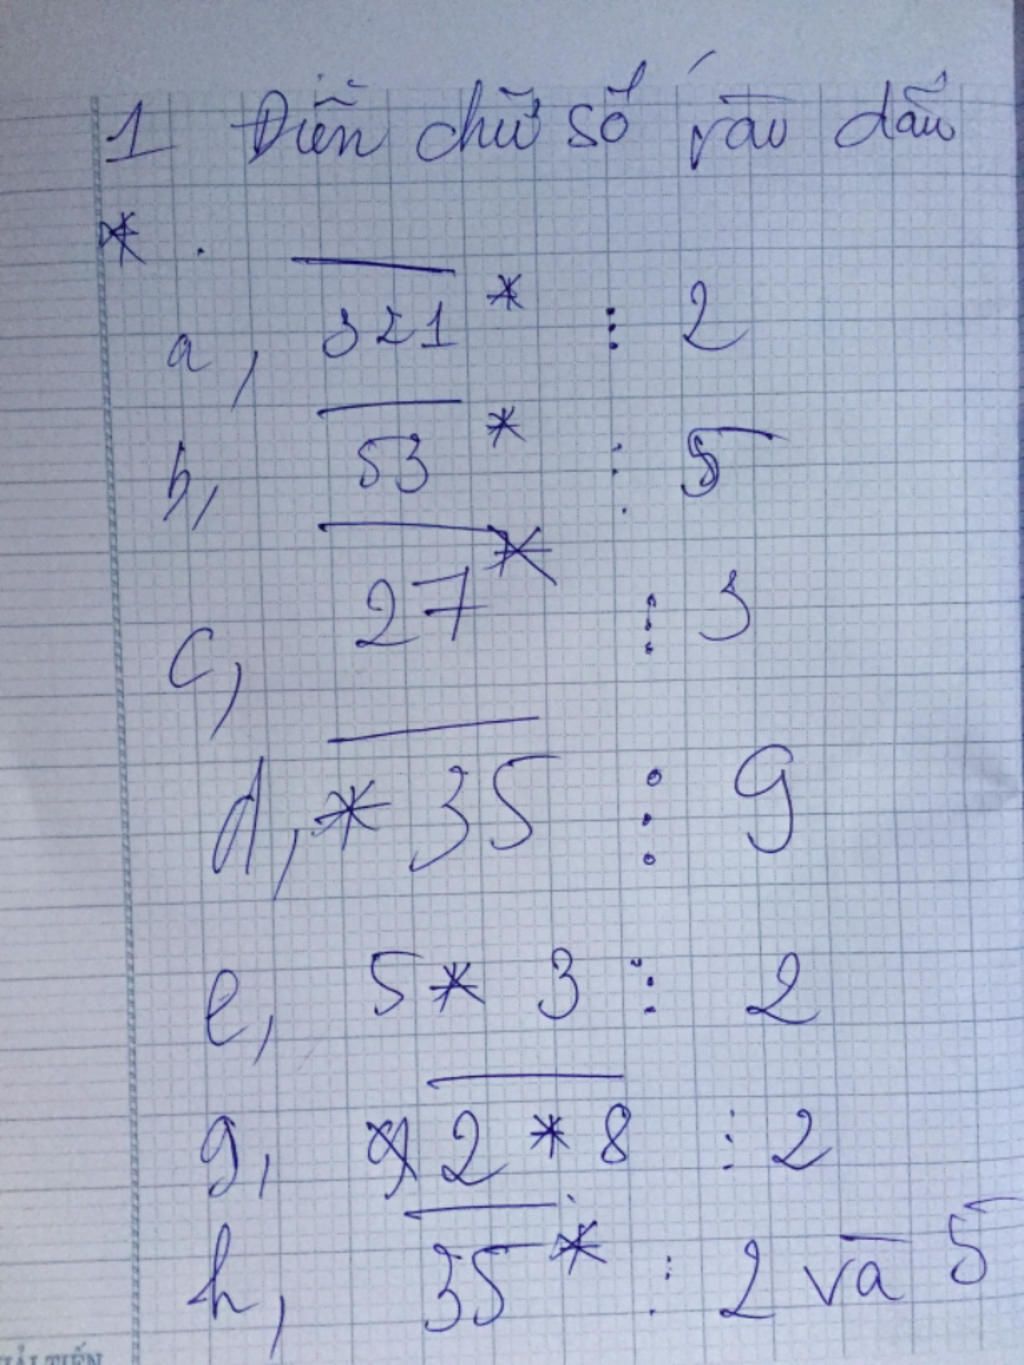 1 Điền chữ số vào dấu
* .
a, 321* ⋮ 2
b, 53* ⋮ 5
c, 27* ⋮ 3
d, *35 ⋮ 9
e, 5*3 ⋮ 2
g, 2*8 ⋮ 2
h, 35* ⋮ 2 và 5